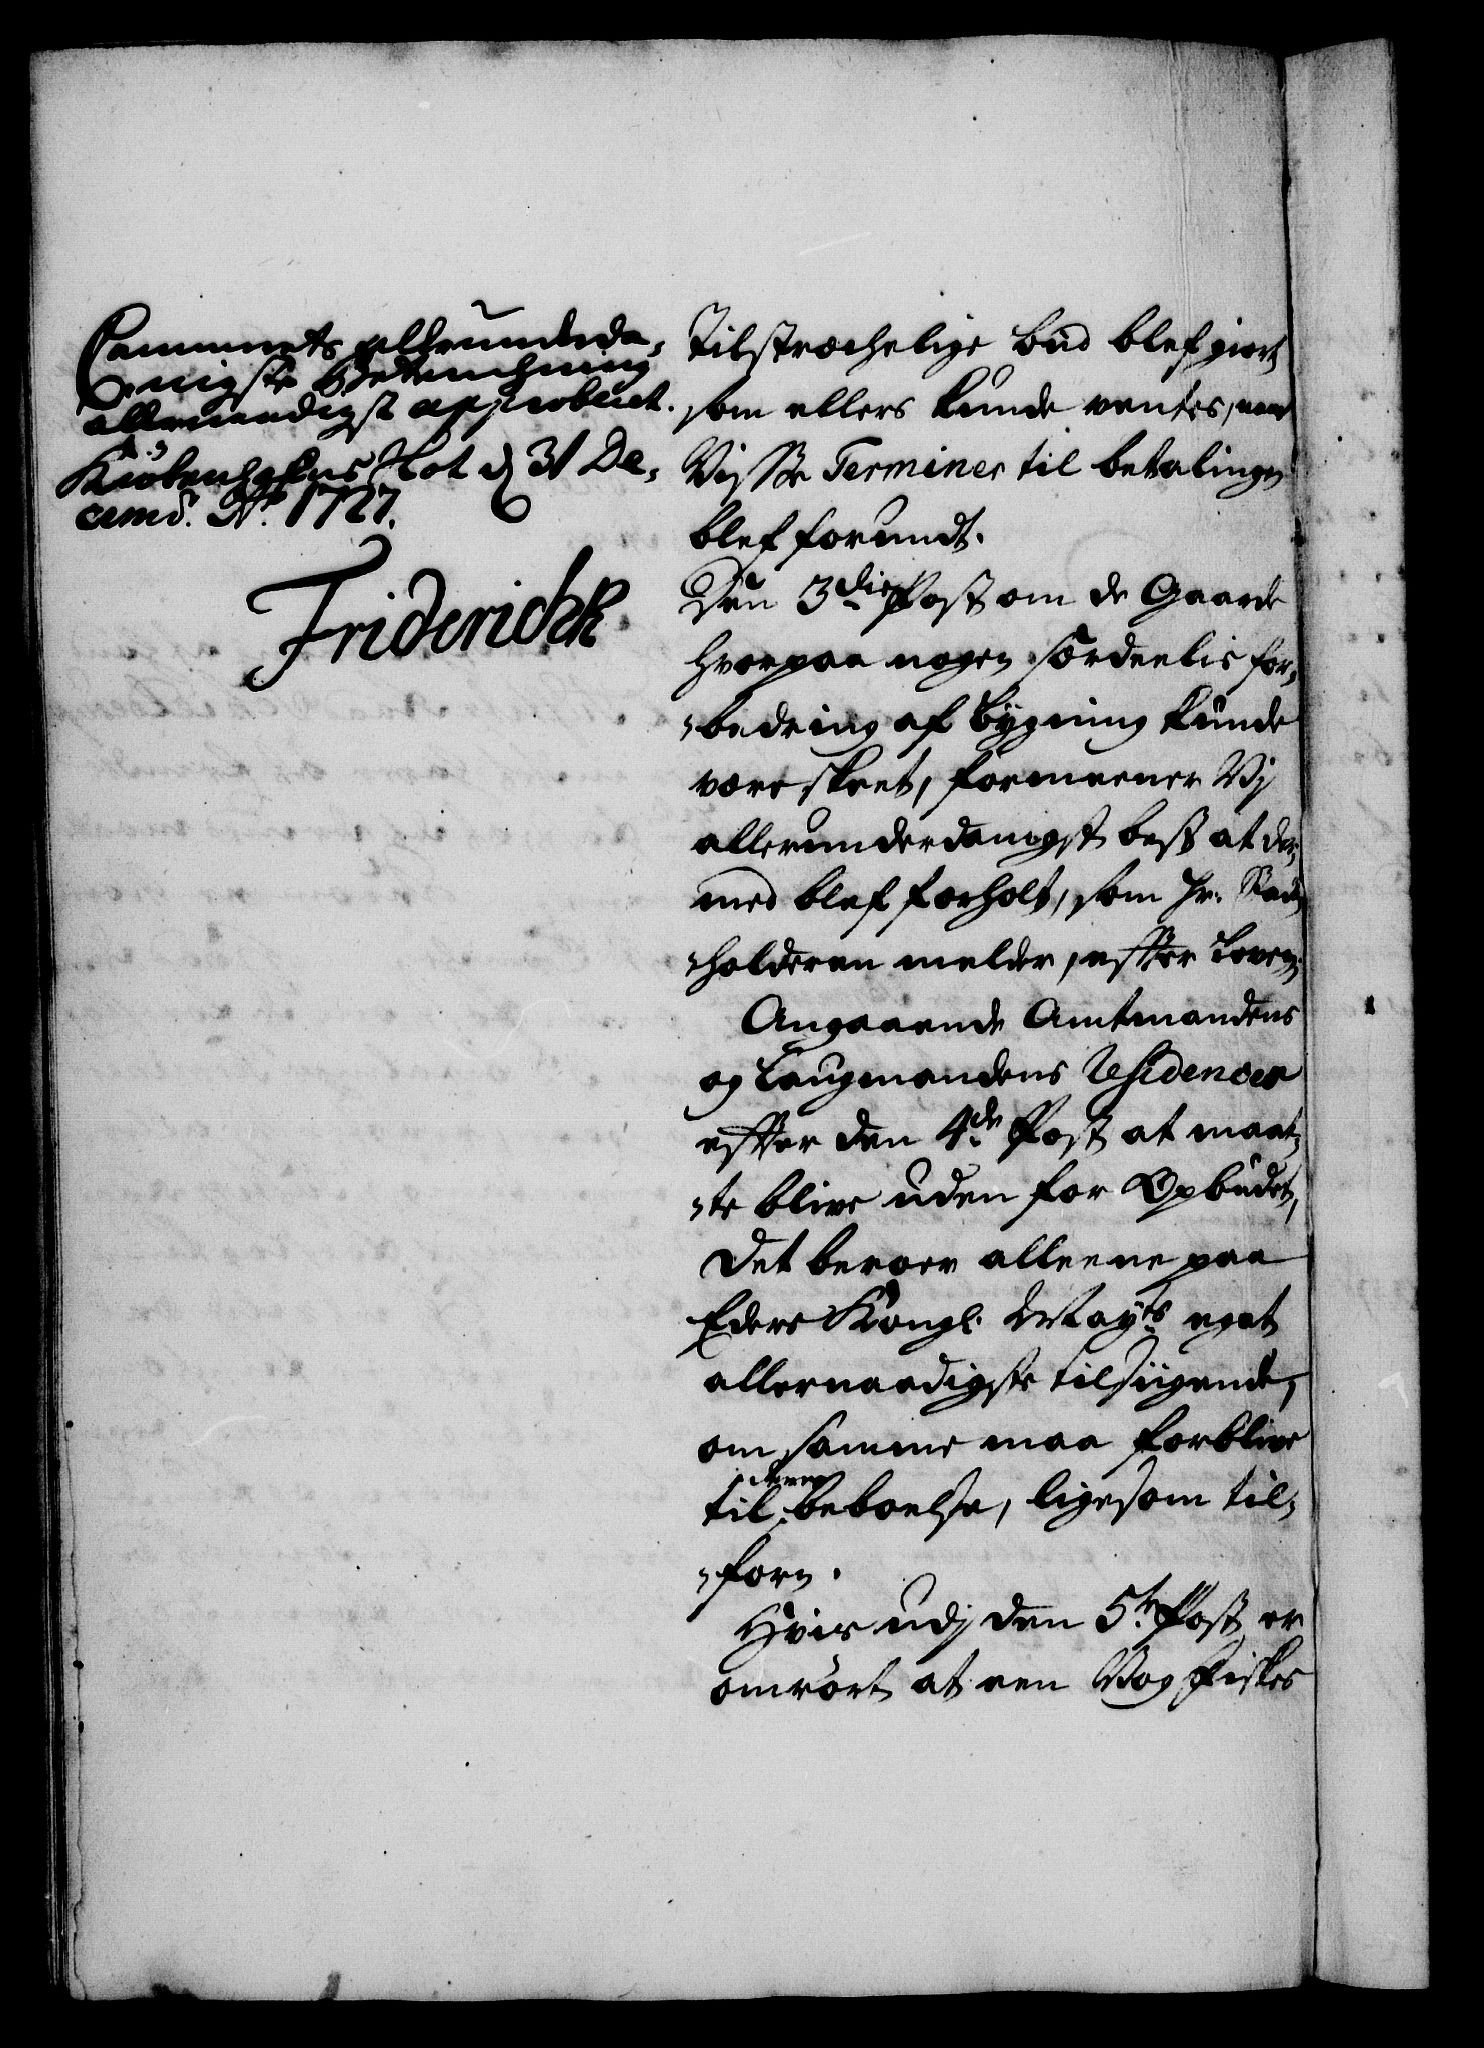 Cammerets allerunderda-
nigste Betenchning
allernaadigst approberet.
Kiöbenhafns Slot d. 31 De-
cembr. Ao. 1727.
Friderich R
tilstræchelige bud blef giort
som ellers kunde ventes, naar
Visse Terminer til betalingen
blef forundt.
Den 3die Post om de Gaarde
hvorpaa nogen særdeelis for-
-bedring af bygning kunde
være skeet, formeener Vj
allerunderdanigst best at der-
med blef forholt, som Hr. Stadt-
-holderen melder, effter Loven.
Angaaende Amtmandens
og Laugmandens Residencer
effter den 4de Post at maat-
-te blive uden for Opbudet,
det beroer alleene paa
Eders Kongl. Mayts eget
allernaadigste tilsigende,
om samme maa forblive
til deres beboelse, ligesom til-
-forn.
Hvis udj den 5te Post er
omrört at een Vog Fiskes